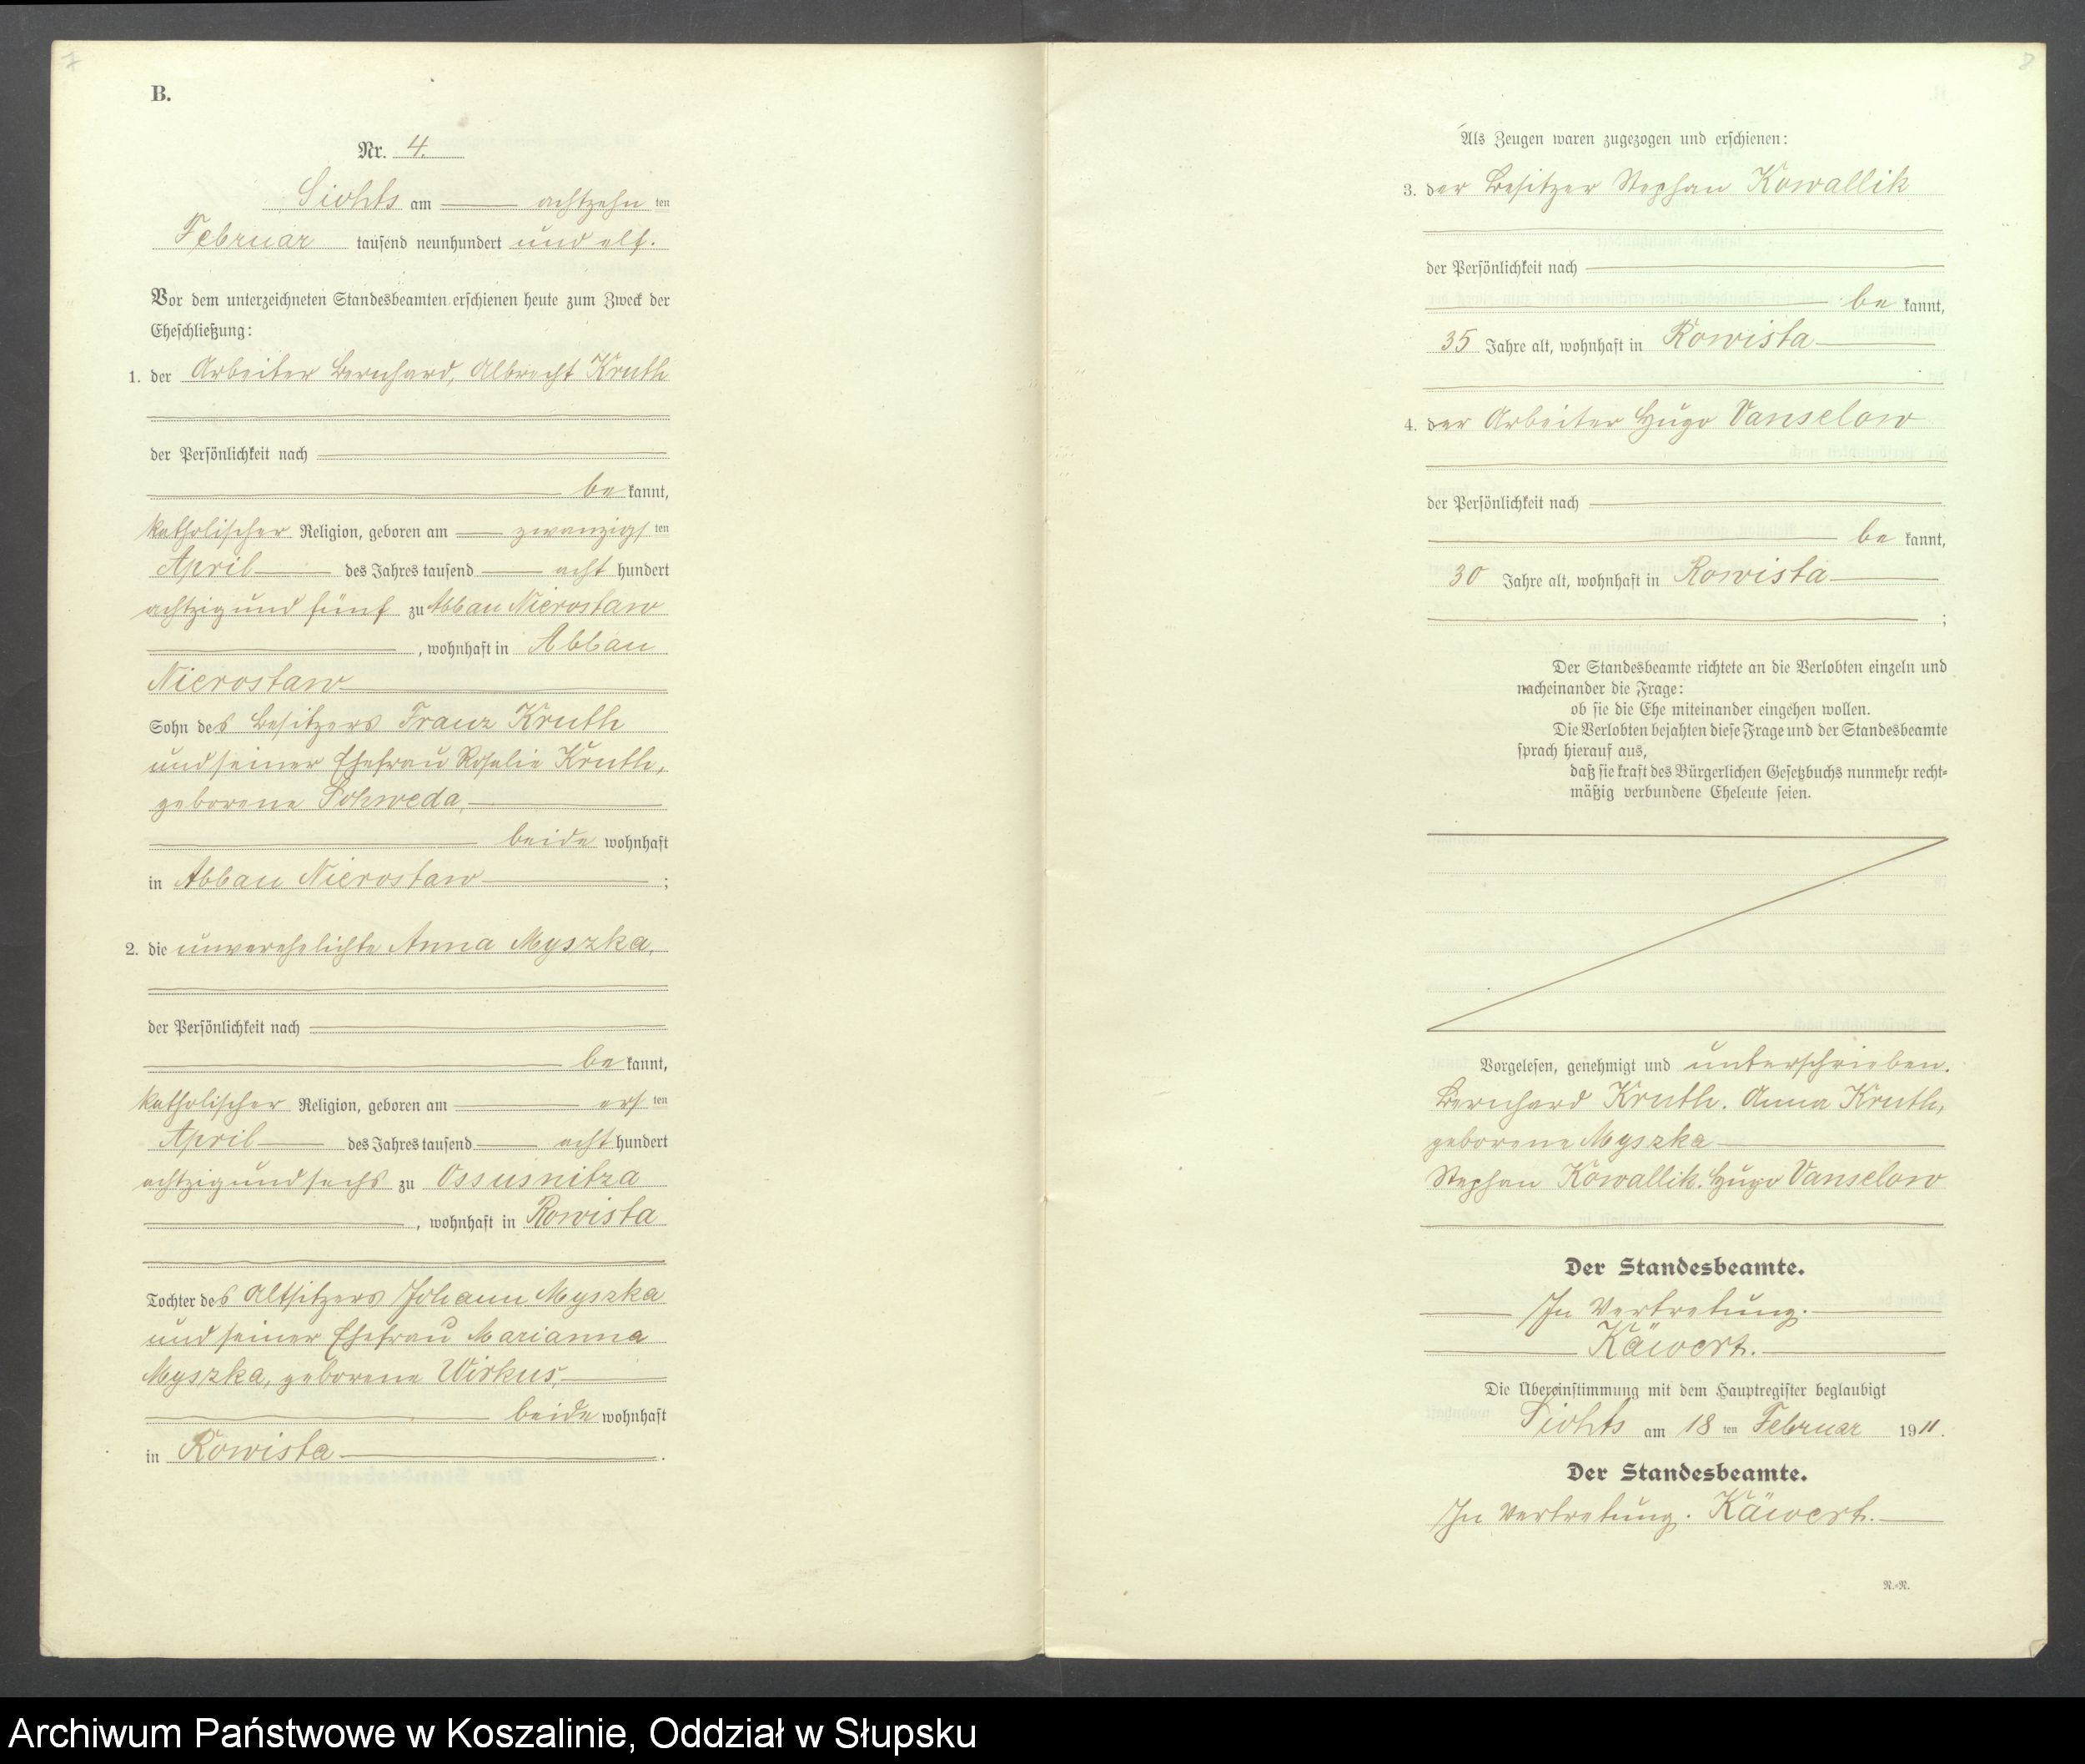 7
B.
Nr. 4.
Sichts am achtzehn ten
Februar tausend neunhundert und elf.
Vor dem unterzeichneten Standesbeamten erschienen heute zum Zweck der
Eheschließung:
1. der Arbeiter Bernhard, Albrecht Kruth
der Persönlichkeit nach
be kannt,
katholischer Religion, geboren am zwanzigs ten
April des Jahres tausend acht hundert
achtzig und fünf zu Abbau Nierostaw
, wohnhaft in Abbau
Nierostaw
Sohn des Besitzers Franz Kruth
und seiner Ehefrau Rosalie Kruth,
geborene Schweda,
beide wohnhaft
in Abbau Nierostaw ;
2. die unverehelichte Anna Myszka,
der Persönlichkeit nach
be kannt,
katholischer Religion, geboren am ers ten
April des Jahres tausend acht hundert
achtzig und sechs zu Ossusnitza
, wohnhaft in Rowista
Tochter des Altsitzers Johann Myszka
und seiner Ehefrau Marianna
Myszka, geborene Wirkus,
beide wohnhaft
in Rowista .
8
Als Zeugen waren zugezogen und erschienen:
3. der Besitzer Stephan Kowallik
der Persönlichkeit nach
be kannt,
35 Jahre alt, wohnhaft in Rowista
4. der Arbeiter Hugo Vanselow
der Persönlichkeit nach
be kannt,
30 Jahre alt, wohnhaft in Rowista
;
Der Standesbeamte richtete an die Verlobten einzeln und
nacheinander die Frage:
ob sie die Ehe miteinander eingehen wollen.
Die Verlobten bejahten diese Frage und der Standesbeamte
sprach hierauf aus,
daß sie kraft des Bürgerlichen Gesetzbuchs nunmehr recht-
mäßig verbundene Eheleute seien.
Vorgelesen, genehmigt und unterschrieben.
Bernhard Kruth. Anna Kruth,
geborene Myszka
Stephan Kowallik. Hugo Vanselow
Der Standesbeamte.
In Vertretung.
Käwert.
Die Übereinstimmung mit dem Hauptregister beglaubigt
Sichts am 18 ten Februar 1911.
Der Standesbeamte.
In Vertretung. Käwert.
N.-N.
Archiwum Państwowe w Koszalinie, Oddział w Słupsku